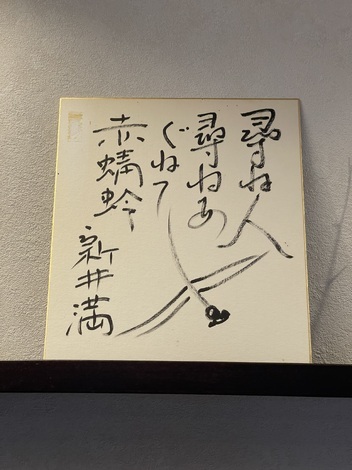 尋ね人
尋ねあ
ぐねて
赤蜻蛉
新井満